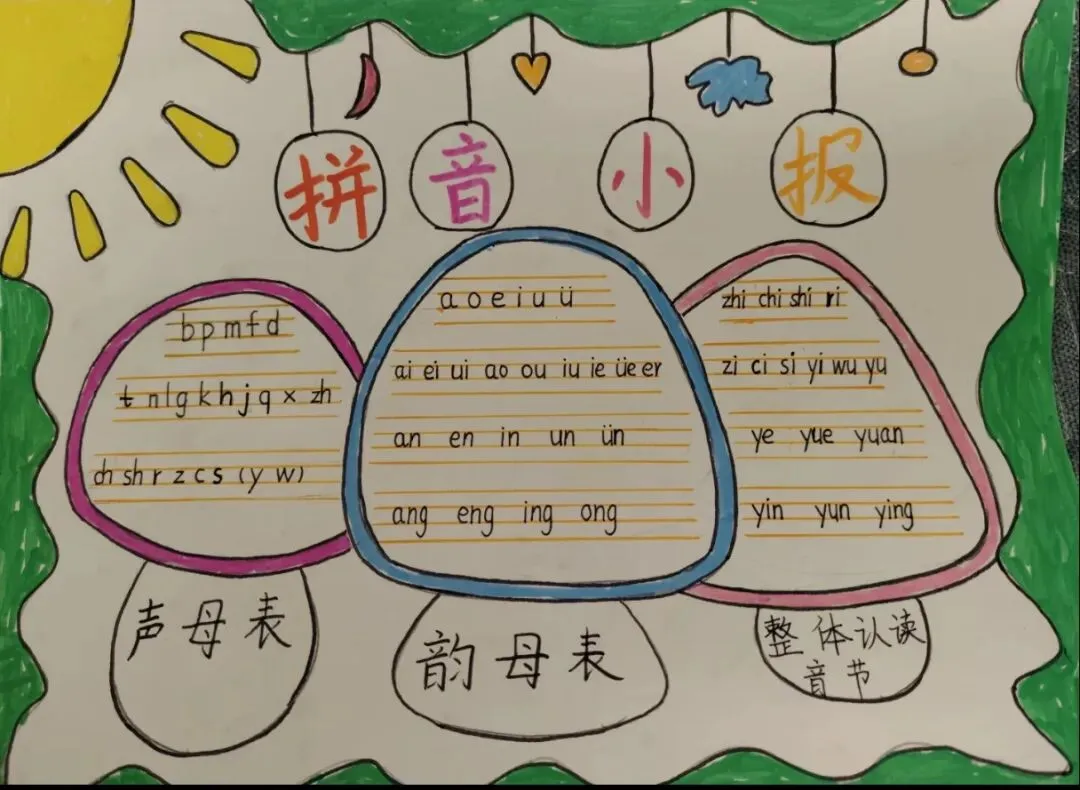 拼音小报
b p m f d
t n l g k h j q x zh
ch sh r z c s (y w)
声母表
a o e i u ü
ai ei ui ao ou iu ie üe er
an en in un ün
ang eng ing ong
韵母表
zhi chi shi ri
zi ci si yi wu yu
ye yue yuan
yin yun ying
整体认读
音节